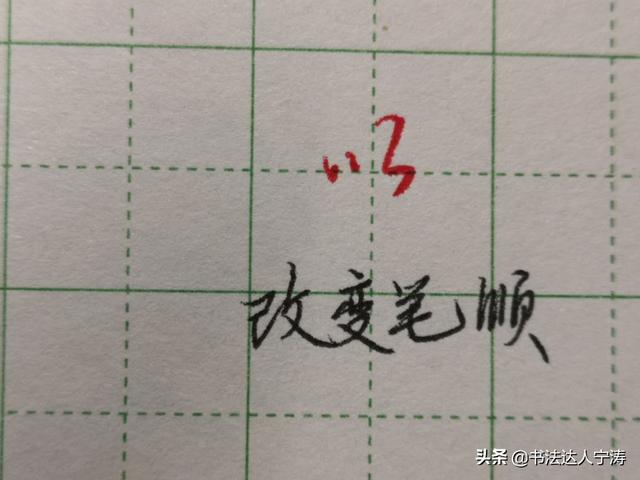 改变笔顺
头条 @书法达人宁涛